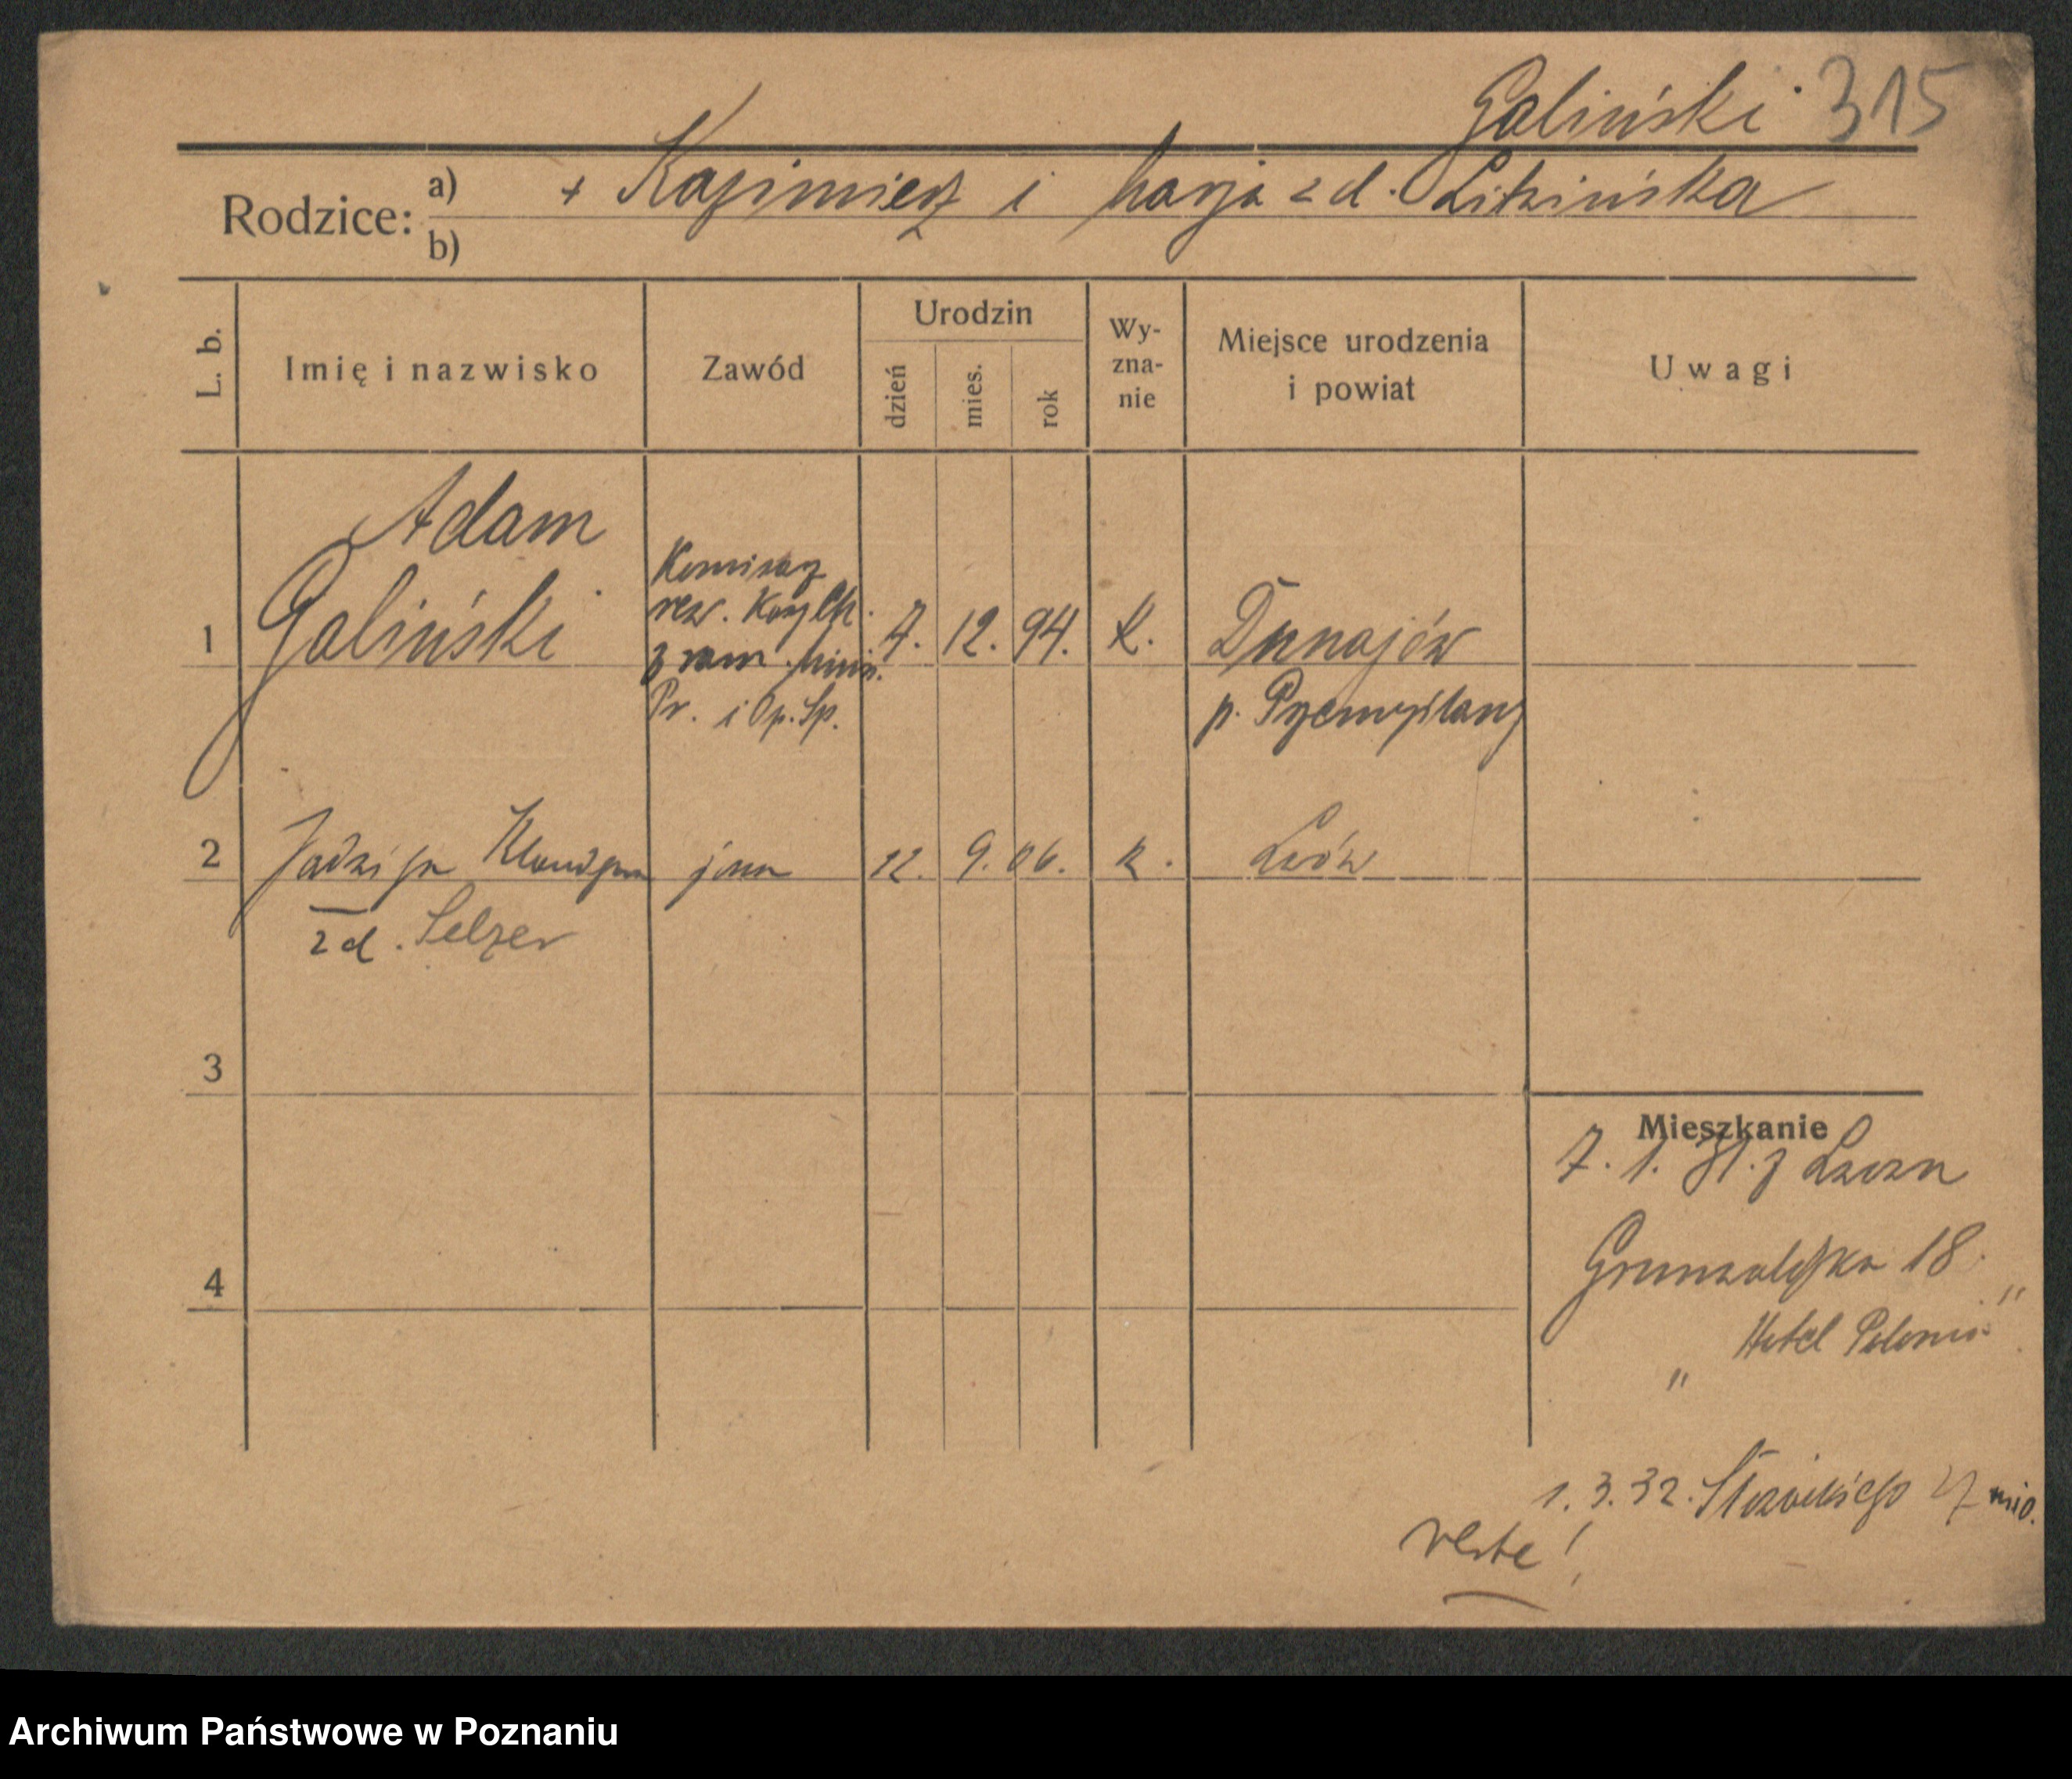 Galiński 315
Rodzice: a) + Kazimierz i Marja z d. Litzińska
b)
L. b.
Imię i nazwisko
Zawód
Urodzin
dzień
mies.
rok
Wy-
zna-
nie
Miejsce urodzenia
i powiat
Uwagi
Adam
1 Galiński
Komisarz
rew.
z ram. Minis.
Pr. i Op. Sp.
7. 12. 94. k.
Dunajów
p. Przemyślany
2 Jadwiga Klaudyna żona 12. 9. 06. k. Lwów
z d. Selzer
3
4
Mieszkanie
7. 1. 31. z Lwowa
Grunwaldzka 18.
"Hotel Polonia"
1. 3. 32. Słowackiego
verte!
Archiwum Państwowe w Poznaniu